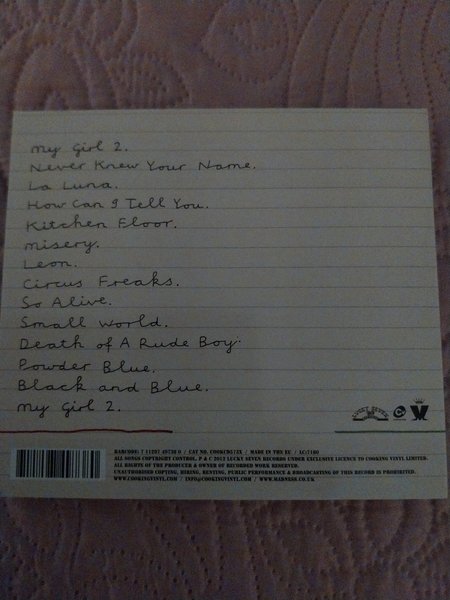 My Girl 2.
Never Knew Your Name.
La Luna.
How Can I Tell You.
Kitchen Floor.
Misery.
Leon.
Circus Freaks.
So Alive.
Small World.
Death of A Rude Boy.
Powder Blue.
Black and Blue.
My Girl 2.
BARCODE: 7 11297 49738 0 / CAT NO. COOKCD578X / MADE IN THE EU / AC/7180
ALL SONGS COPYRIGHT CONTROL. P & C 2012 LUCKY SEVEN RECORDS UNDER EXCLUSIVE LICENCE TO COOKING VINYL LIMITED.
ALL RIGHTS OF THE PRODUCER & OWNER OF RECORDED WORK RESERVED.
UNAUTHORISED COPYING, HIRING, RENTING, PUBLIC PERFORMANCE & BROADCASTING OF THIS RECORD IS PROHIBITED.
WWW.COOKINGVINYL.COM / INFO@COOKINGVINYL.COM / WWW.MADNESS.CO.UK